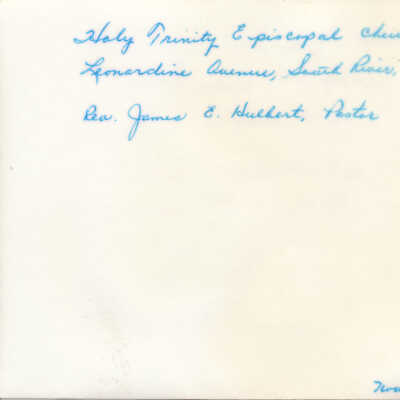 Holy Trinity Episcopal
Leonardine Avenue, South River,
Rev. James E. Hulbert, Pastor